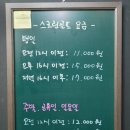 - 스크린골프 요금 -
평일
오전 12시 이전 : 11.000원
오후 16시 이전 : 15.000원
저녁 16시 이후 : 17.000원
주말, 공휴일
오전 12시 이전 : 12.000